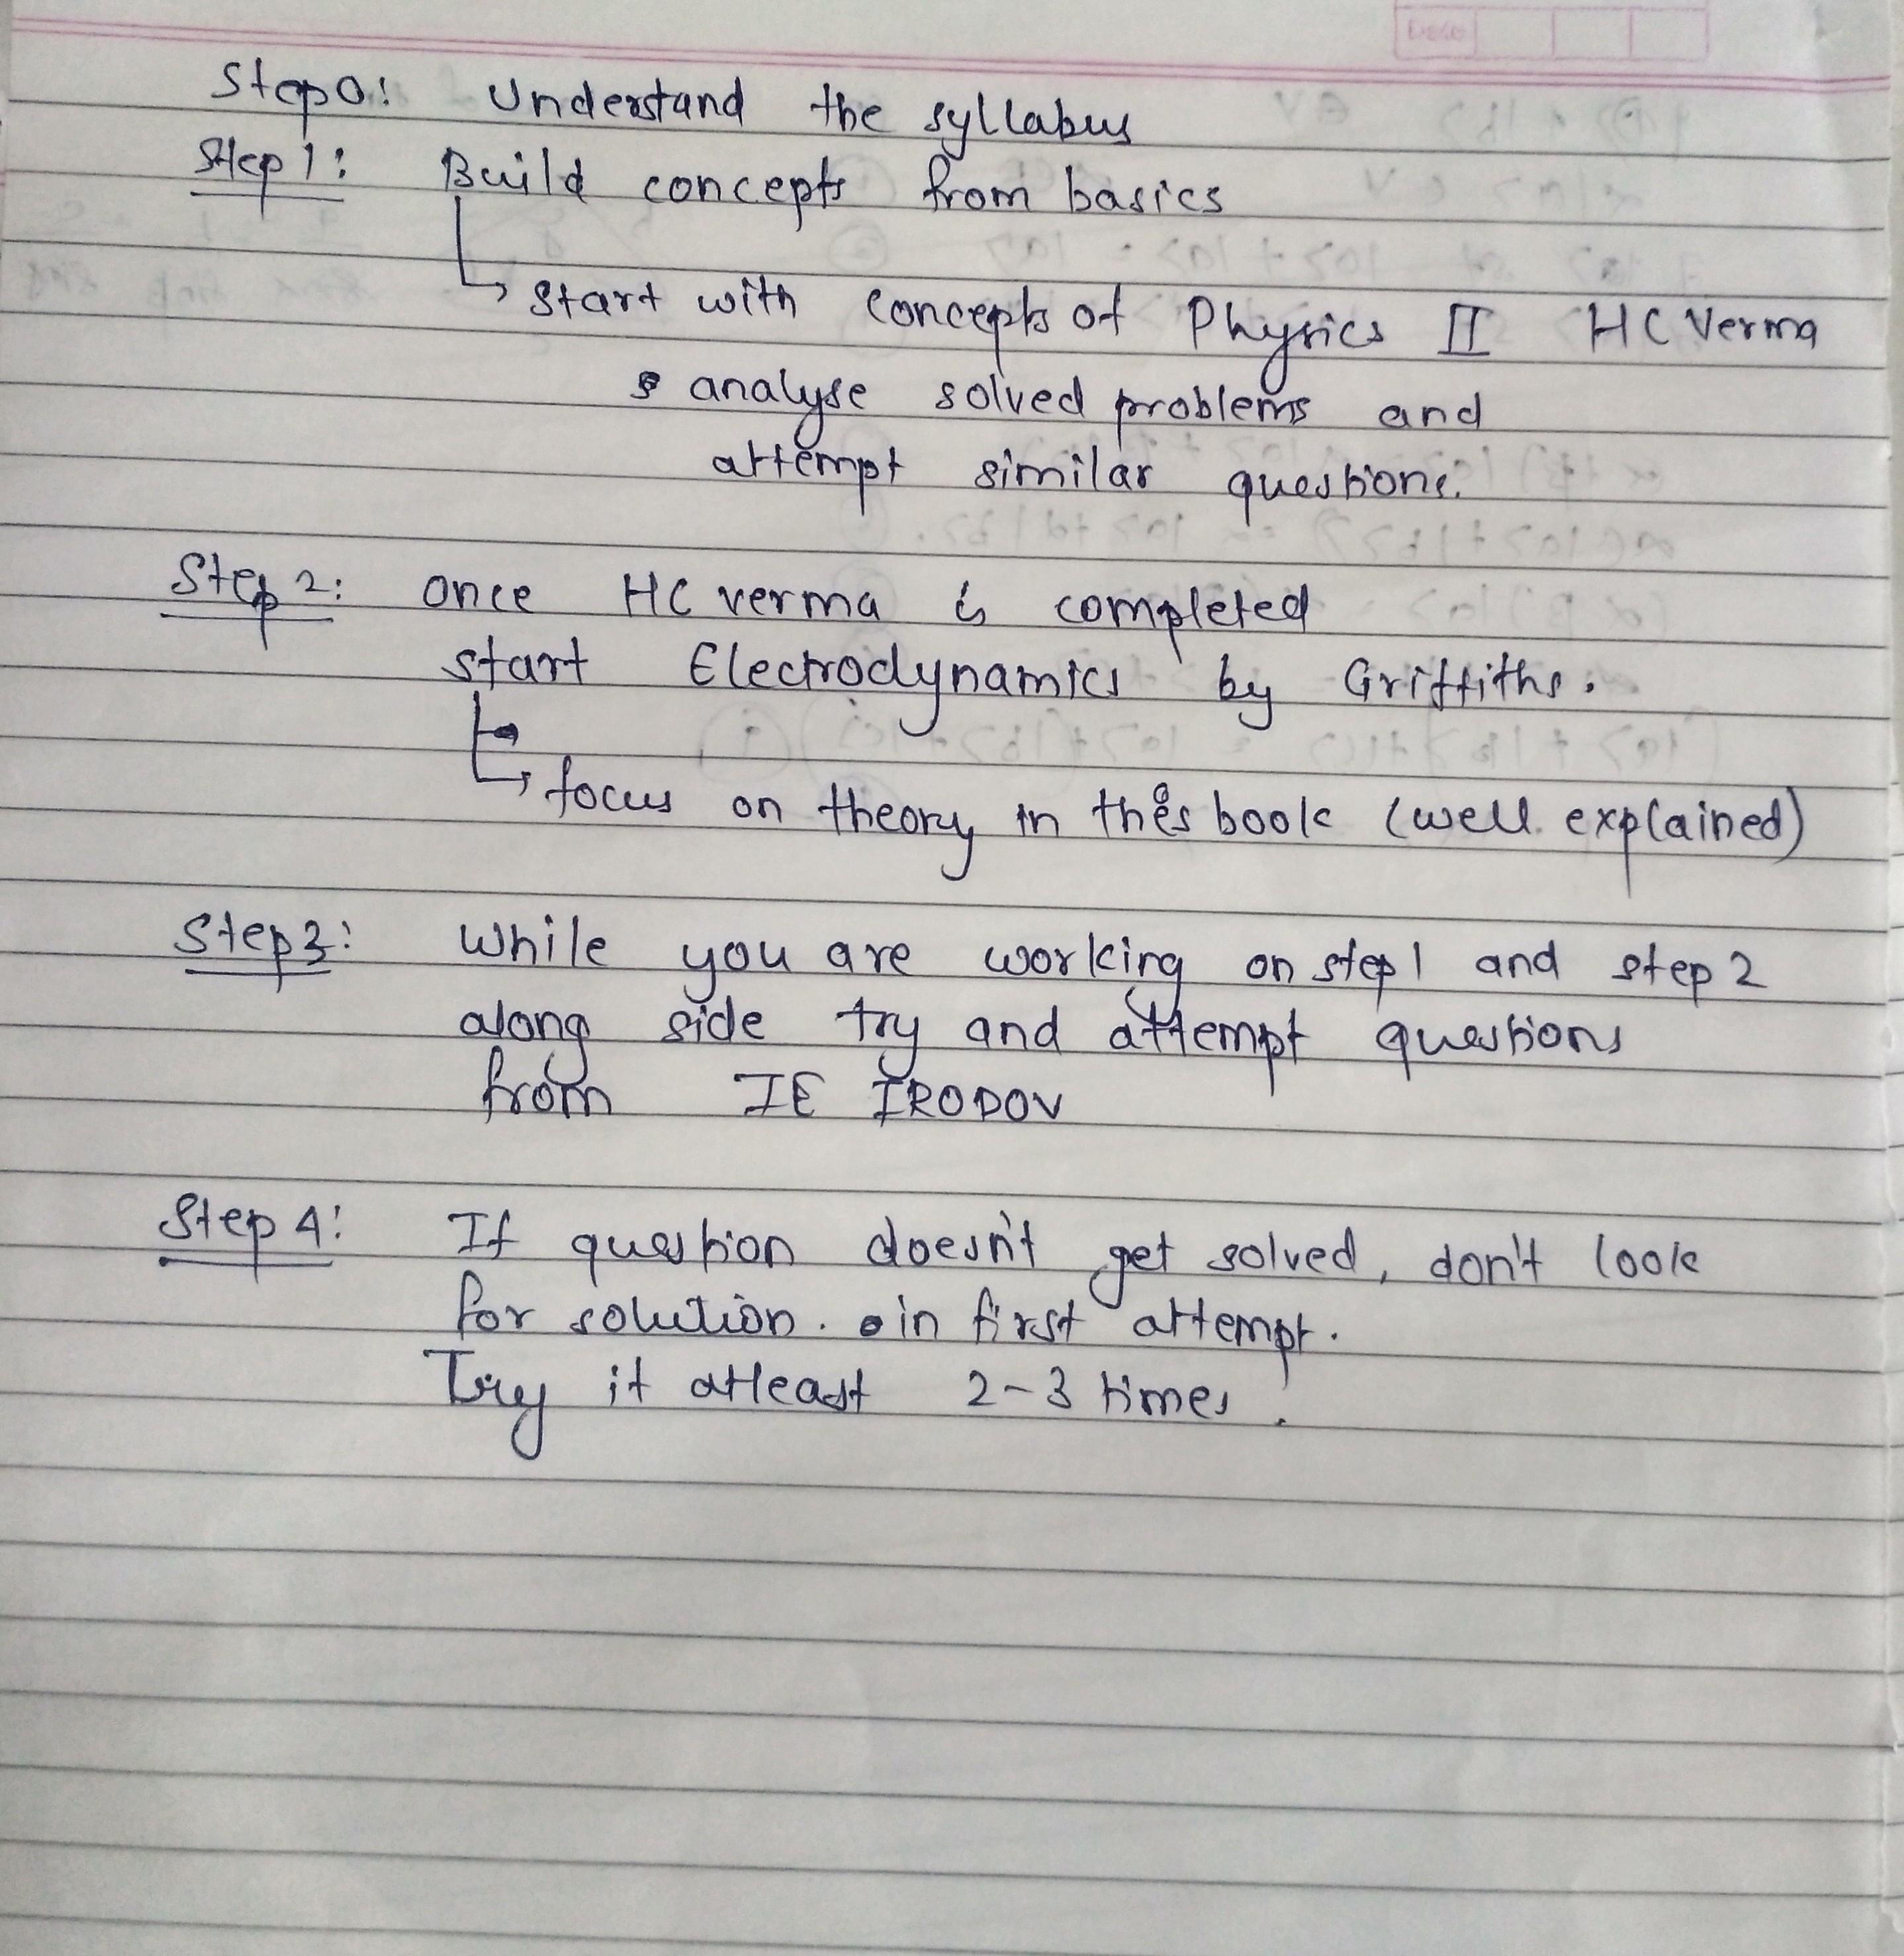 Step0: Understand the syllabus
Step 1: Build concepts from basics
start with concepts of Physics II HC Verma
analyse solved problems and
attempt similar questions.
Step 2: once HC verma is completed
start Electrodynamics by Griffiths.
focus on theory in this book (well explained)
Step3: While you are working on step1 and step 2
along side try and attempt questions
from IE IRODOV
Step 4: If question doesn't get solved, don't look
for solution. in first attempt.
Try it atleast 2-3 times.